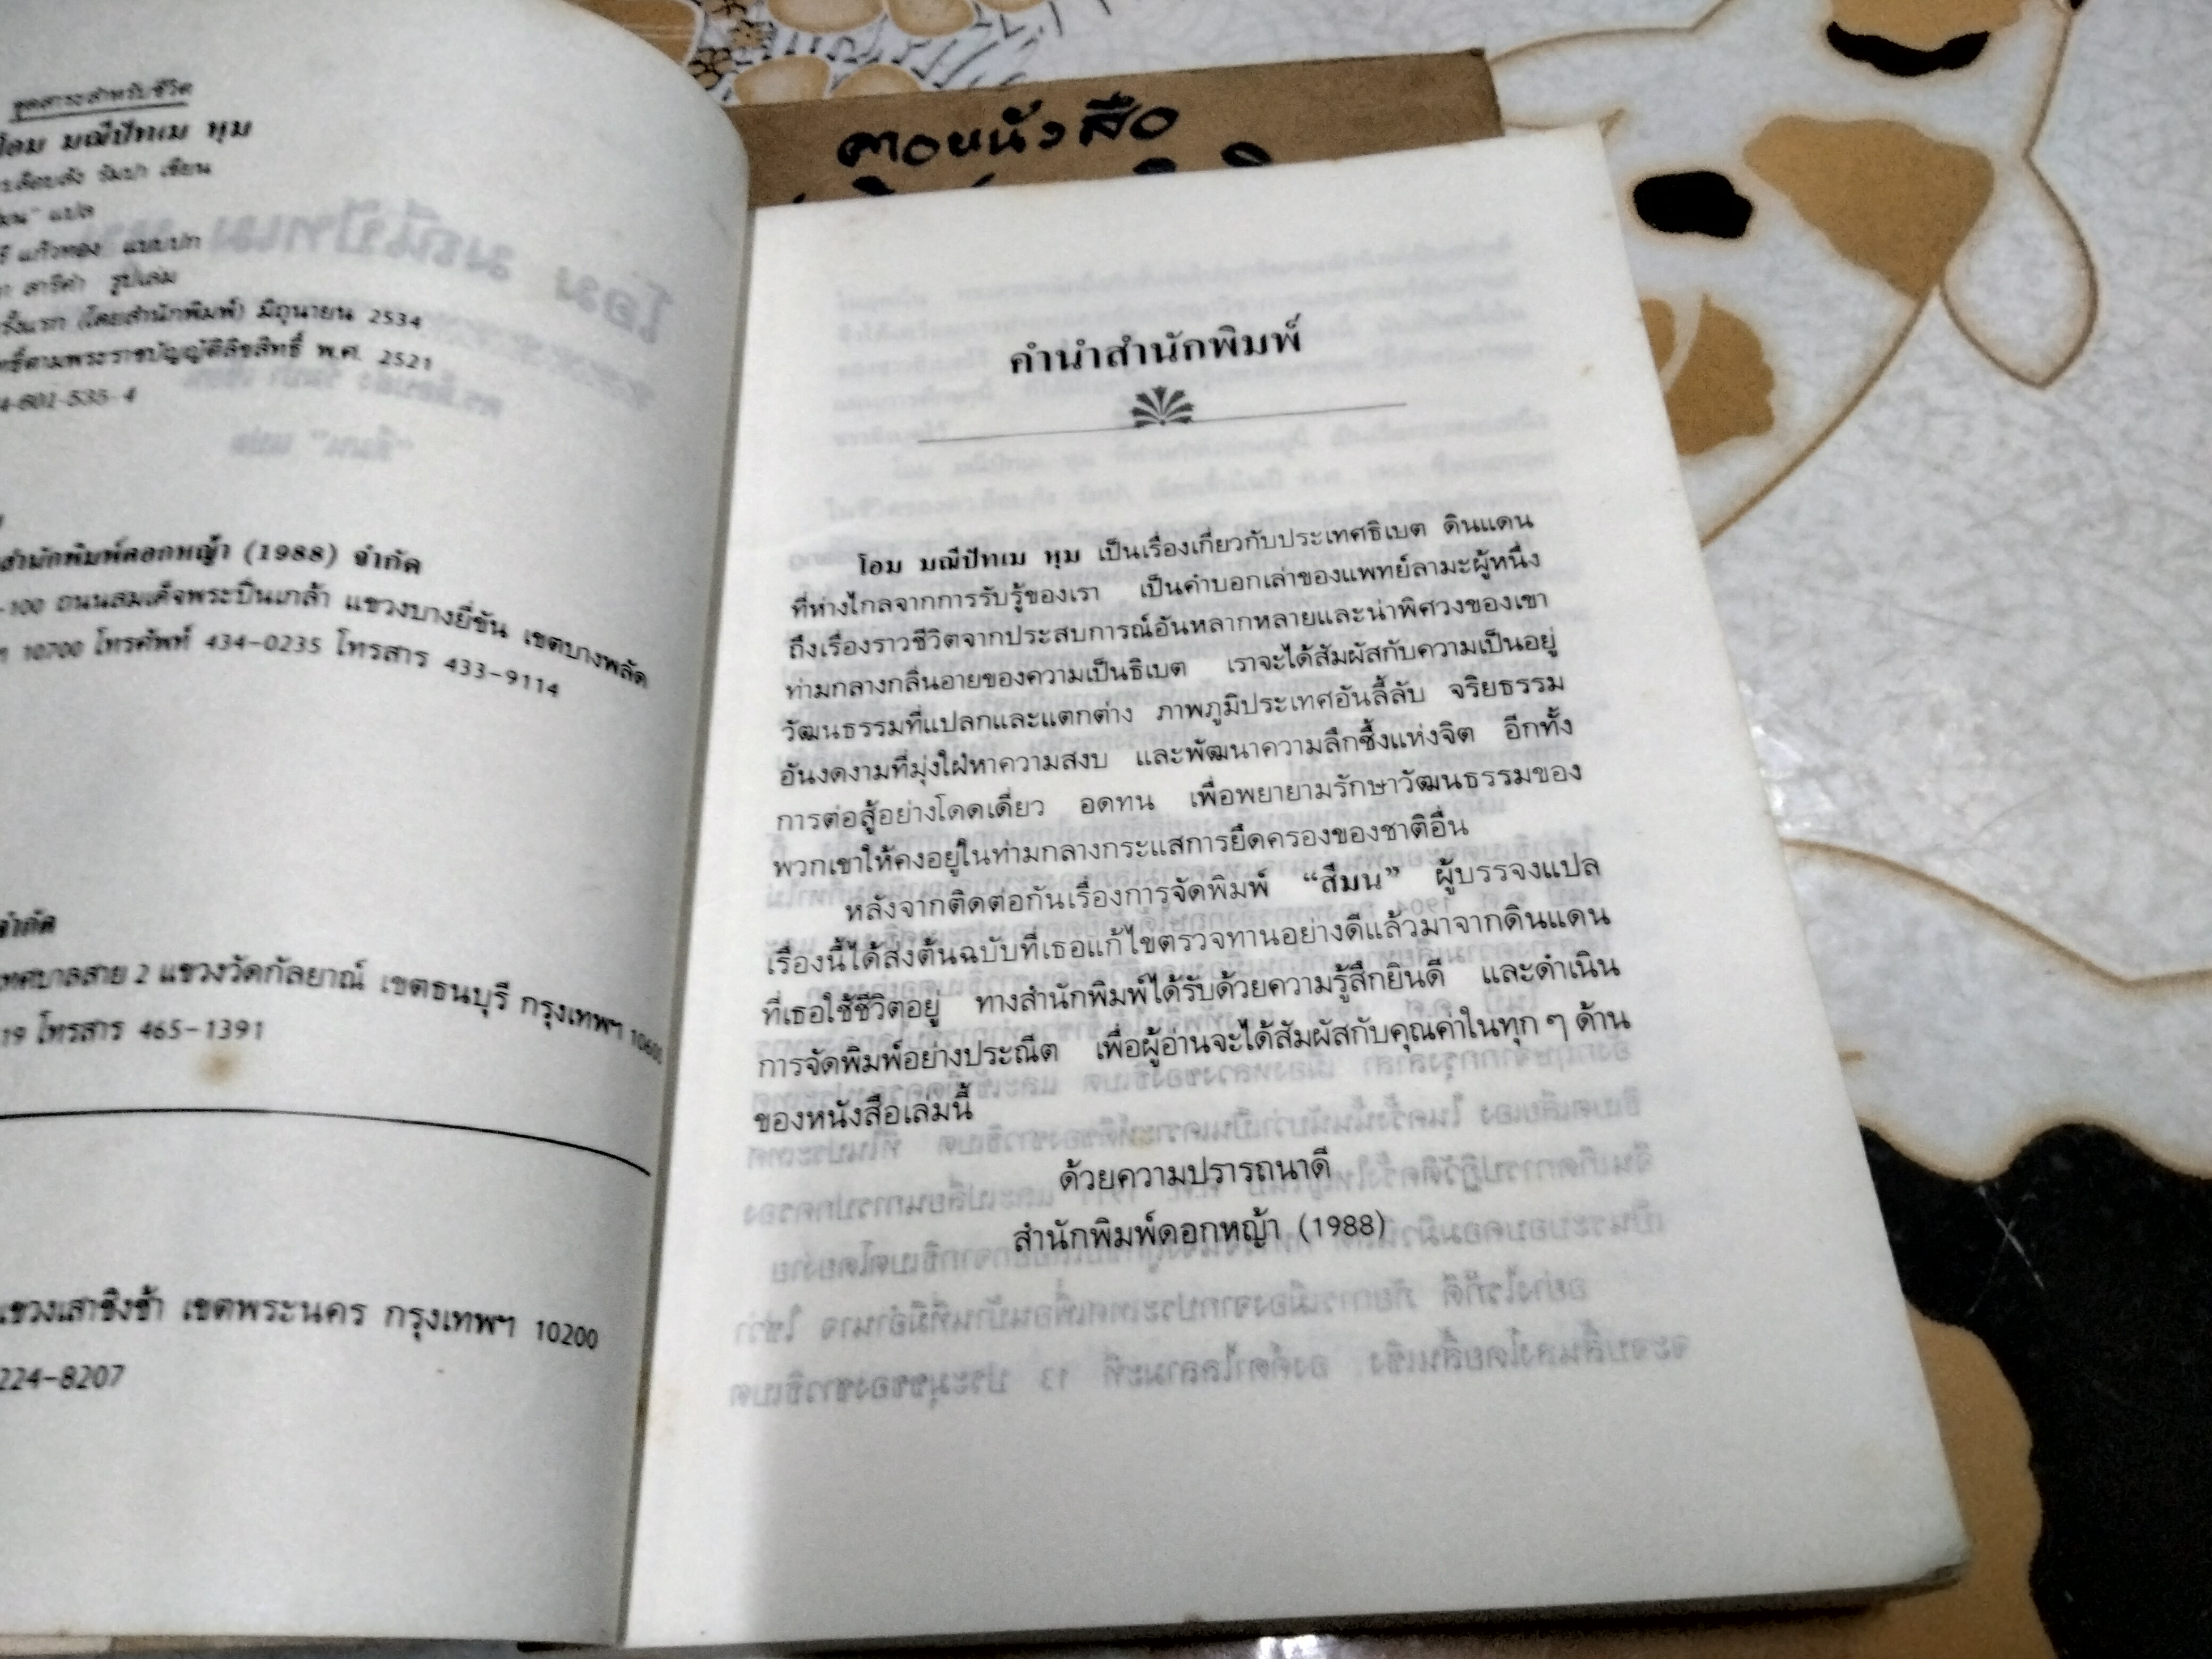 ชุดสาระสำหรับชีวิต
โอม มณีปัทเม หุม
รัมปา เขียน
แปล
แก้วทอง แบบปก
สารีคำ รูปเล่ม
(โดยสำนักพิมพ์) มิถุนายน 2534
ตามพระราชบัญญัติลิขสิทธิ์ พ.ศ. 2521
4-601-535-4
สำนักพิมพ์ดอกหญ้า (1988) จำกัด
-100 ถนนสมเด็จพระปิ่นเกล้า แขวงบางยี่ขัน เขตบางพลัด
10700 โทรศัพท์ 434-0235 โทรสาร 433-9114
จำกัด
เทศบาลสาย 2 แขวงวัดกัลยาณ์ เขตธนบุรี กรุงเทพฯ 10600
19 โทรสาร 465-1391
แขวงเสาชิงช้า เขตพระนคร กรุงเทพฯ 10200
224-8207
ตอหนังสือ
คำนำสำนักพิมพ์
โอม มณีปัทเม หุม เป็นเรื่องเกี่ยวกับประเทศธิเบต ดินแดน
ที่ห่างไกลจากการรับรู้ของเรา เป็นคำบอกเล่าของแพทย์ลามะผู้หนึ่ง
ถึงเรื่องราวชีวิตจากประสบการณ์อันหลากหลายและน่าพิศวงของเขา
ท่ามกลางกลิ่นอายของความเป็นธิเบต เราจะได้สัมผัสกับความเป็นอยู่
วัฒนธรรมที่แปลกและแตกต่าง ภาพภูมิประเทศอันลี้ลับ จริยธรรม
อันงดงามที่มุ่งใฝ่หาความสงบ และพัฒนาความลึกซึ้งแห่งจิต อีกทั้ง
การต่อสู้อย่างโดดเดี่ยว อดทน เพื่อพยายามรักษาวัฒนธรรมของ
พวกเขาให้คงอยู่ในท่ามกลางกระแสการยึดครองของชาติอื่น
หลังจากติดต่อกันเรื่องการจัดพิมพ์ “สีมน” ผู้บรรจงแปล
เรื่องนี้ได้ส่งต้นฉบับที่เธอแก้ไขตรวจทานอย่างดีแล้วมาจากดินแดน
ที่เธอใช้ชีวิตอยู่ ทางสำนักพิมพ์ได้รับด้วยความรู้สึกยินดี และดำเนิน
การจัดพิมพ์อย่างประณีต เพื่อผู้อ่านจะได้สัมผัสกับคุณค่าในทุก ๆ ด้าน
ของหนังสือเล่มนี้
ด้วยความปรารถนาดี
สำนักพิมพ์ดอกหญ้า (1988)